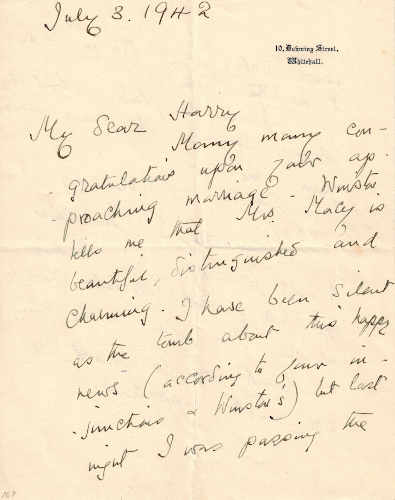 July 3. 1942
10, Downing Street,
Whitehall.
My dear Harry
Many many con-
gratulations upon your ap-
proaching marriage - Winston
tells me that Mrs. Macy is
beautiful, distinguished and
charming. I have been silent
as the tomb about this happy
news (according to your in-
junctions & Winston's) but last
night I was passing the